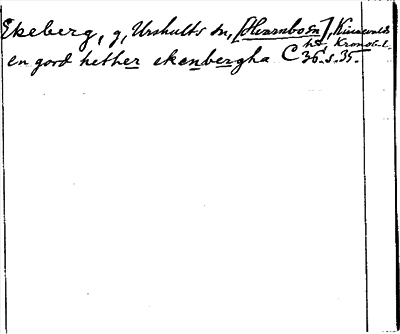 Ekeberg, g, Urshults sn, [Hunnbosn], Kinnevalds
hd. Kronob. l.
en gord hether ekenbergha C 36. s. 35.